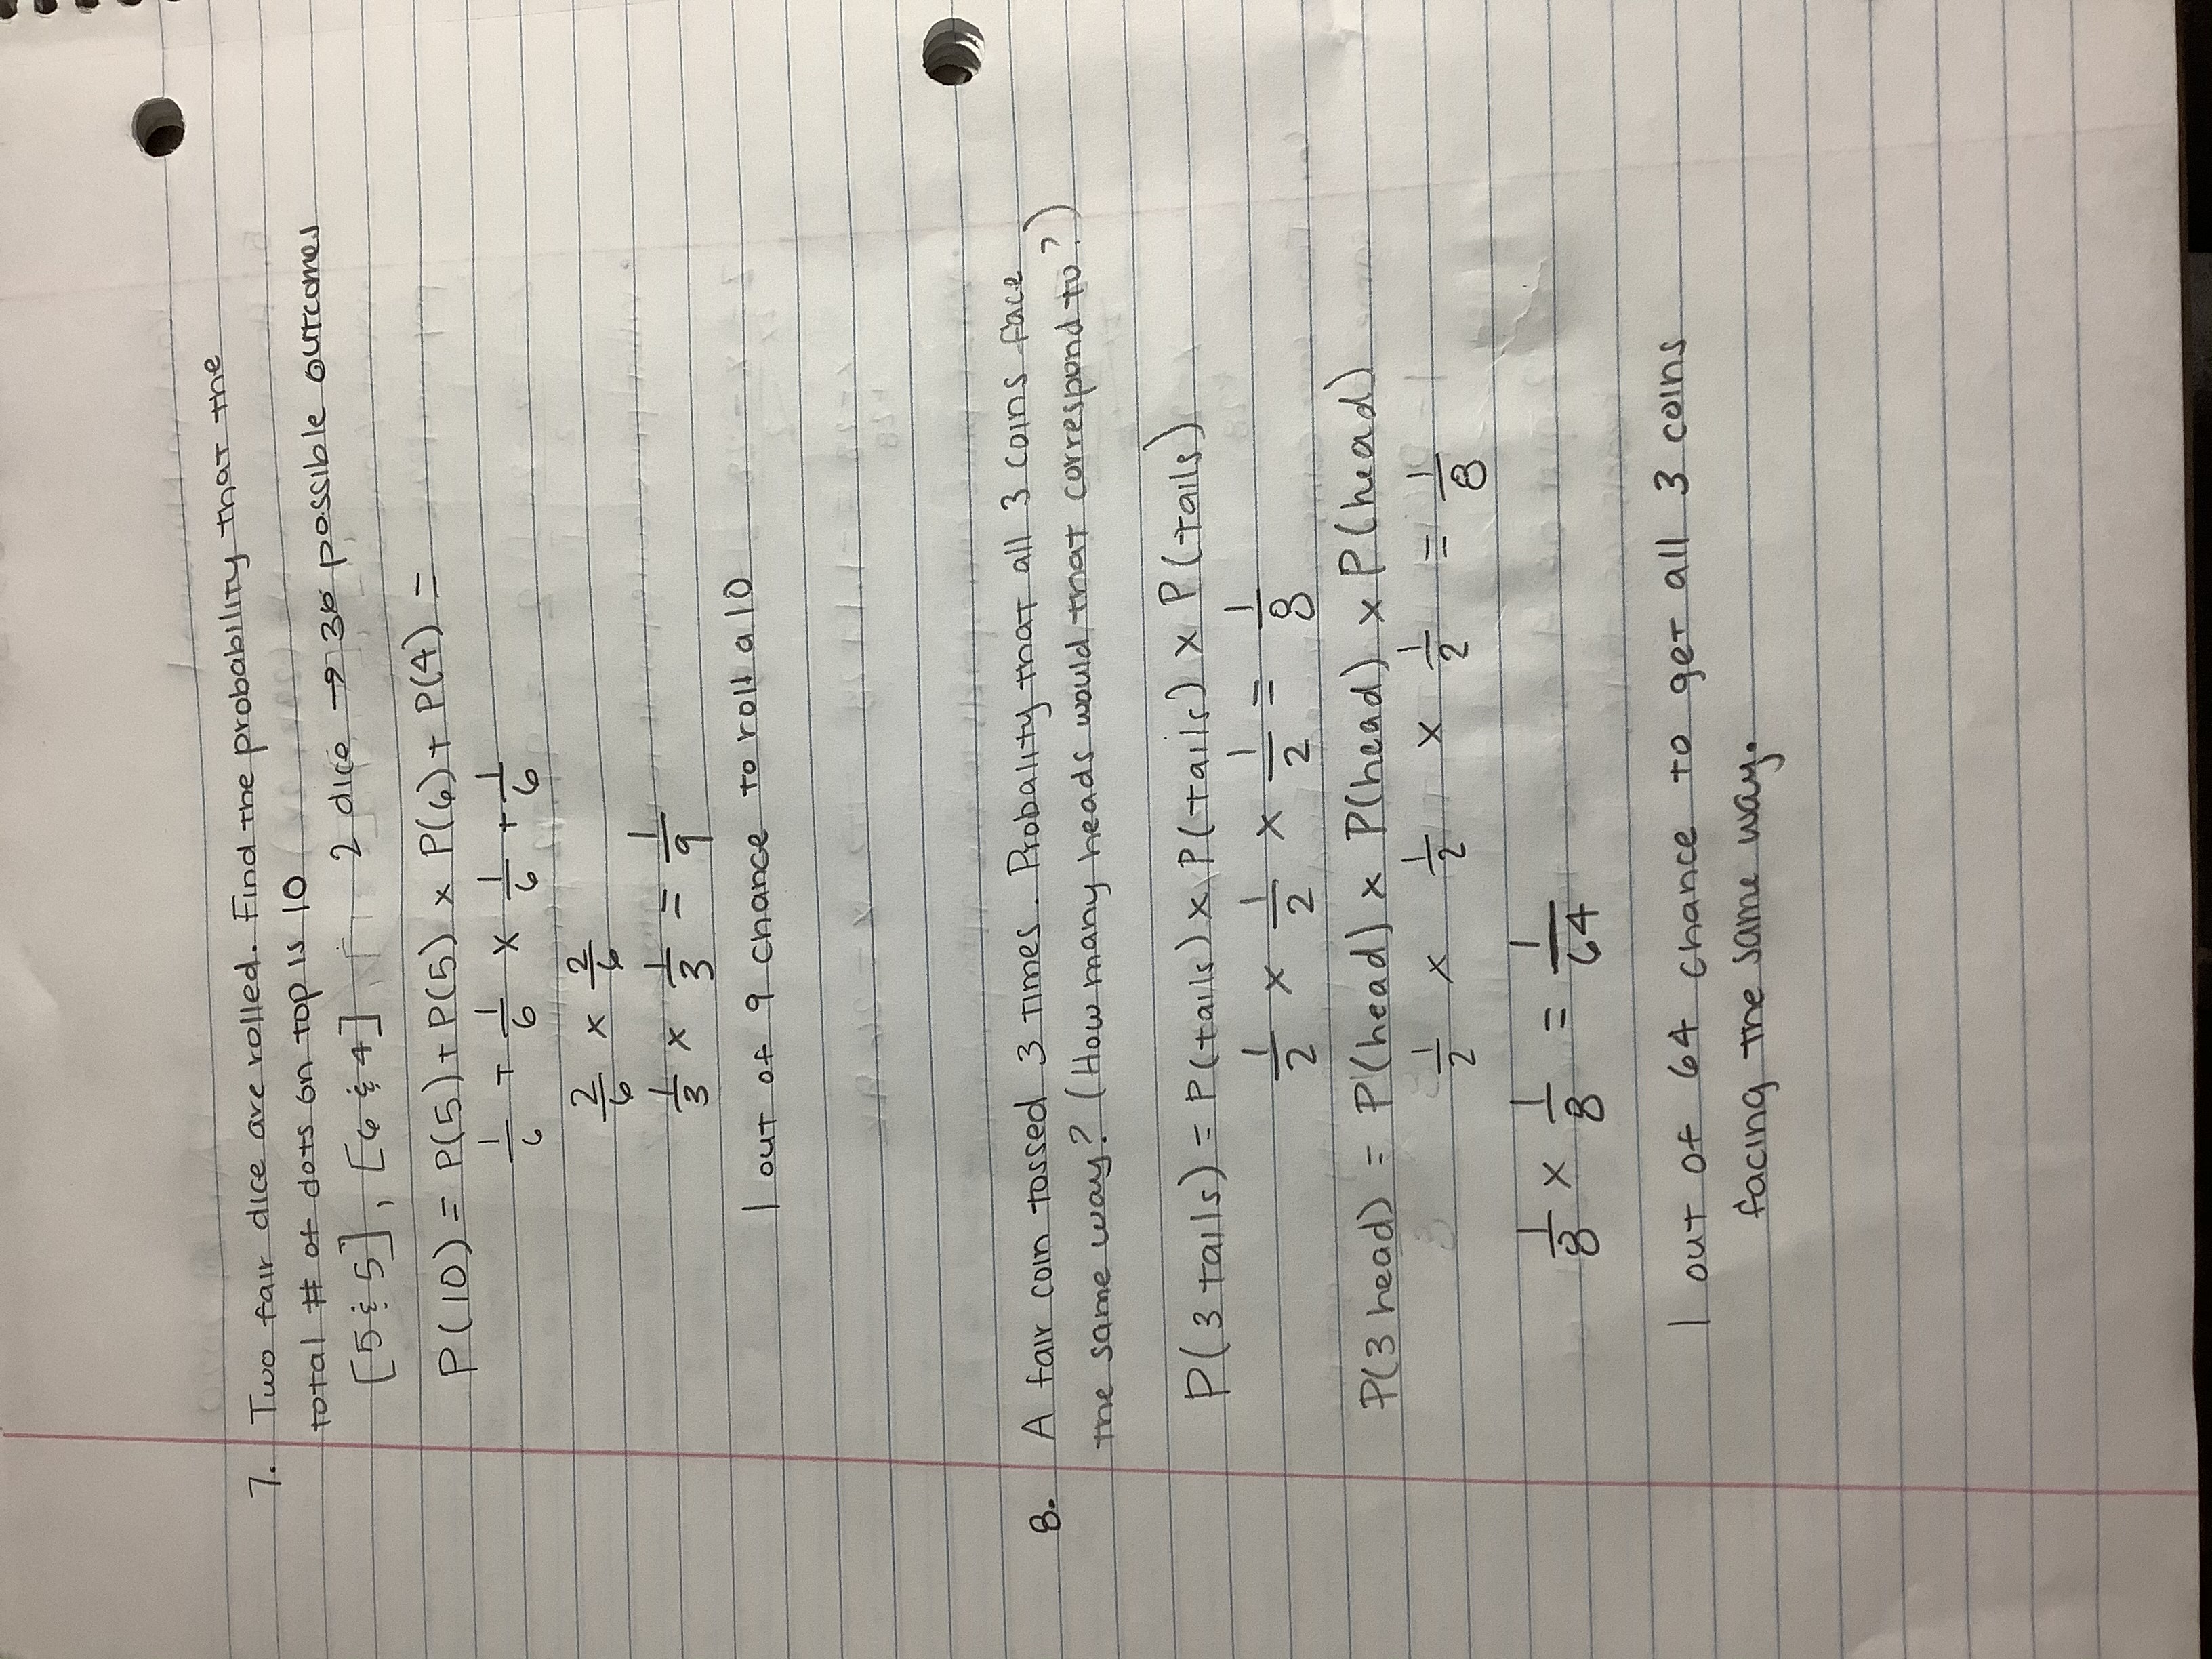 7. Two fair dice are rolled. Find the probability that the
total # of dots on top is 10
[5 & 5], [6 & 4] 2 dice → 36 possible outcomes
P(10) = P(5) + P(5) x P(6) + P(4) =
1/6 + 1/6 x 1/6 + 1/6
2/6 x 2/6
1/3 x 1/3 = 1/9
1 out of 9 chance to roll a 10
8. A fair coin tossed 3 times. Probality that all 3 coins face
the same way? (How many heads would that correspond to?)
P(3 tails) = P(tails) x P(tails) x P(tails)
1/2 x 1/2 x 1/2 = 1/8
P(3 head) = P(head) x P(head) x P(head)
1/2 x 1/2 x 1/2 = 1/8
1/8 x 1/8 = 1/64
1 out of 64 chance to get all 3 coins
facing the same way.